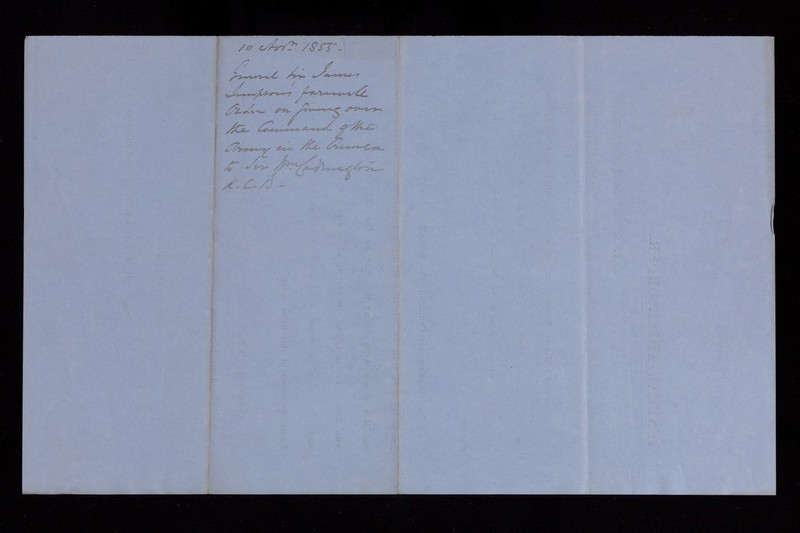 10 Novr. 1855-
General Sir James
Simpson's farewell
Order on giving over
the Command of the
Army in the Crimea
to Sir Wm. Codrington
K.C.B-